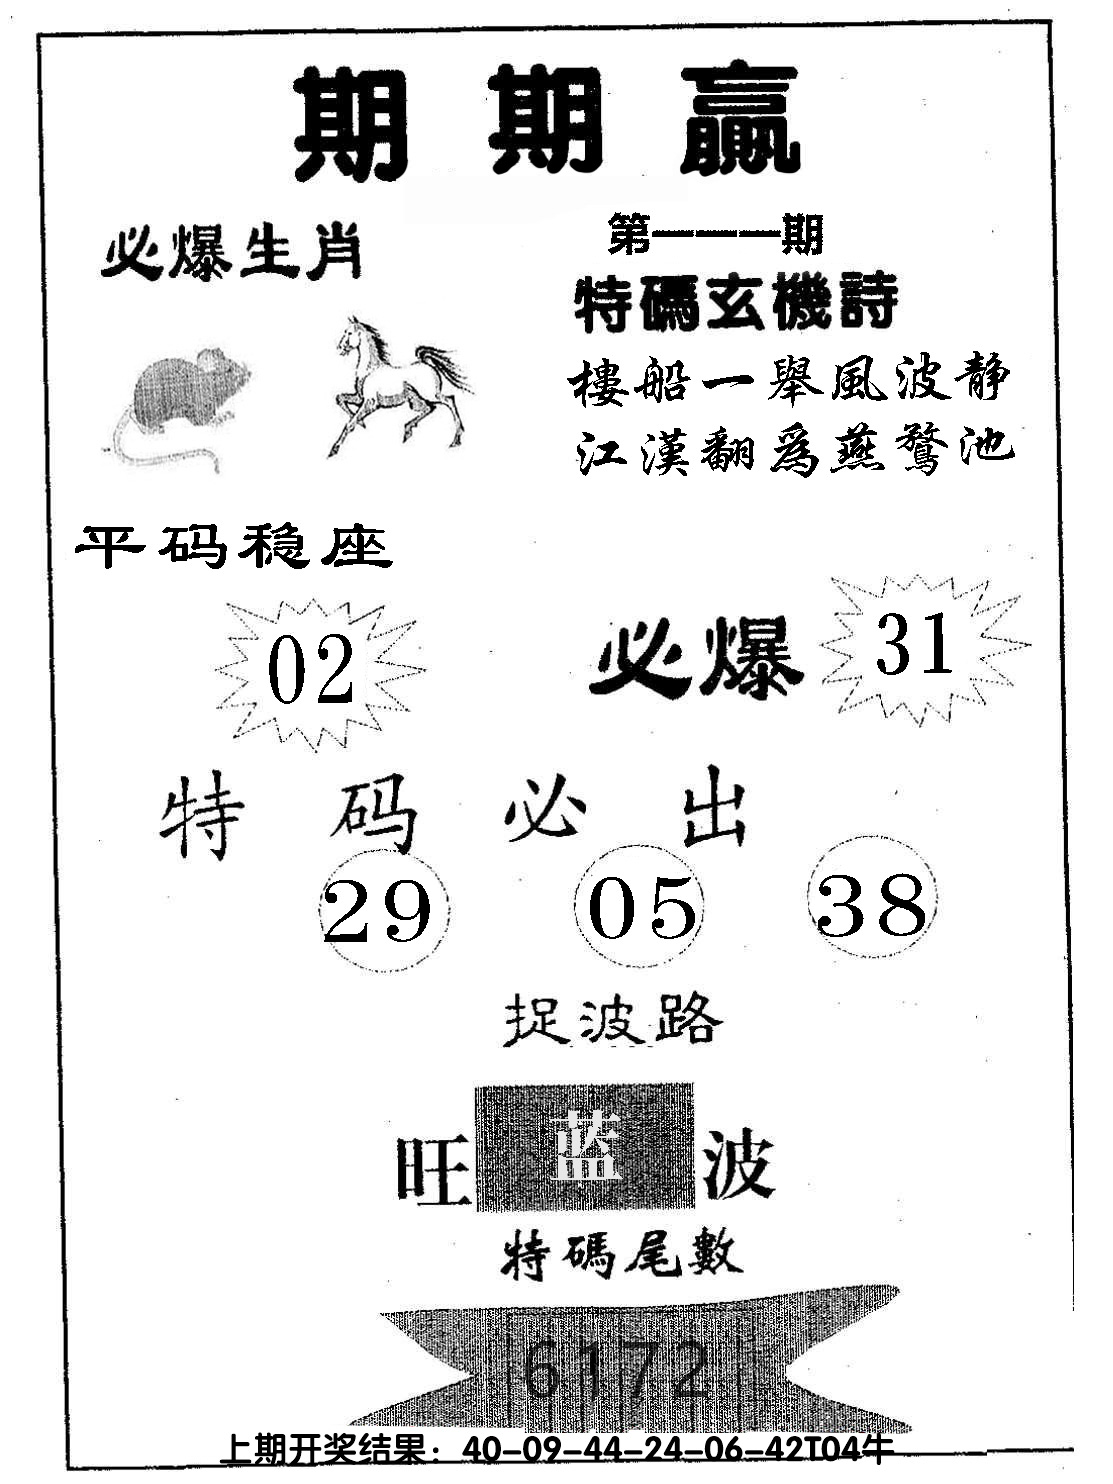 期期赢
必爆生肖
第一一一期
特碼玄機詩
樓船一舉風波静
江漢翻爲燕鶩池
平码稳座
02
必爆 31
特码必出
29 05 38
捉波路
旺 蓝 波
特碼尾數
6172
上期开奖结果：40-09-44-24-06-42T04牛